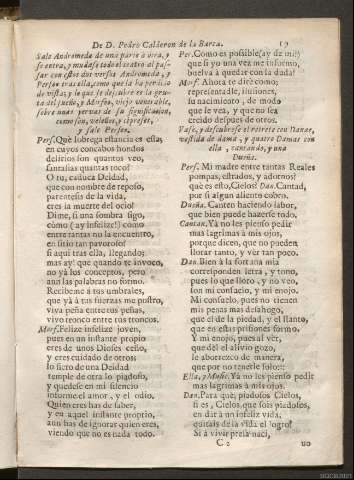 De D. Pedro Calderon de la Barca. 19
Sale Andromeda de una parte à otra, y
se entra, y mudase todo el teatro al pas-
sar con estos dos versos Andromeda, y
Perseo tras ella, como que la ha perdido
de vista; y lo que se descubre es la gru-
ta del sueño, y Morfeo, viejo venerable,
sobre unas yervas de su significacion,
como son, veleños, y cipreses,
y sale Perseo.
Pers. Què lobrega estancia es esta,
en cuyos concabos hondos
delirios son quantos veo,
fantasias quantas toco!
O tu, caduca Deidad,
que con nombre de reposo,
parentesis de la vida,
eres la muerte del ocio!
Dime, si una sombra sigo,
còmo (ay infelize!) como
entre tantas no la encuentro,
en sitio tan pavoroso!
si aqui tras ella, llegando;
mas ay! que quando te invoco,
no yà los conceptos, pero
aun las palabras no formo.
Recibeme à tus umbrales,
que yà à tus fuerzas me postro,
viva peña entre tus peñas,
vivo tronco entre tus troncos.
Morf. Felize infelize joven,
pues en un instante propio
eres de unos Dioses ceño,
y eres cuidado de otros;
lo fiero de una Deidad
temple de otra lo piadoso,
y quedese en mi silencio
informe el amor, y el odio.
Quien eres has de saber,
y en aquel instante proprio,
aun has de ignorar quien eres,
viendo que no es nada todo.
Per. Còmo es possible (ay de mi!)
que si yo una vez me informo,
buelva à quedar con la duda?
Morf. Ahora te dirè como;
representadle, ilusiones,
su nacimiento, de modo
que le vea, y que no sea
creido despues de otros.
Vase, y descubrese el retrete con Danae,
vestida de dama, y quatro Damas con
ella, cantando, y una
Dueña.
Pers. Mi madre entre tantas Reales
pompas, estrados, y adornos?
què es esto, Cielos! Dan. Cantad,
por si algun aliento cobro.
Dueña. Canten haciendo labor,
que bien puede hazerse todo.
Cantan. Yà no les pienso pedir
mas lagrimas à mis ojos,
porque dicen, que no pueden
llorar tanto, y vèr tan poco.
Dan. Bien à la fortuna mia
corresponden letra, y tono,
pues lo que lloro, y no veo,
son mi consuelo, y mi enojo.
Mi consuelo, pues no tienen
mis penas mas desahogo,
que el de la piedad, y el llanto,
que en estas prisiones formo.
Y mi enojo, pues al vèr,
que del el alivio gozo,
le aborrezco de manera,
que por no tenerle solo::
Ella, y Music. Yà no les pienso pedir
mas lagrimas à mis ojos.
Dan. Para què, piadosos Cielos,
si es, Cielos, que sois piadosos,
en dàr à un infeliz vida,
quitais de la vida el logro?
Si à vivir presa naci,
C 2 no